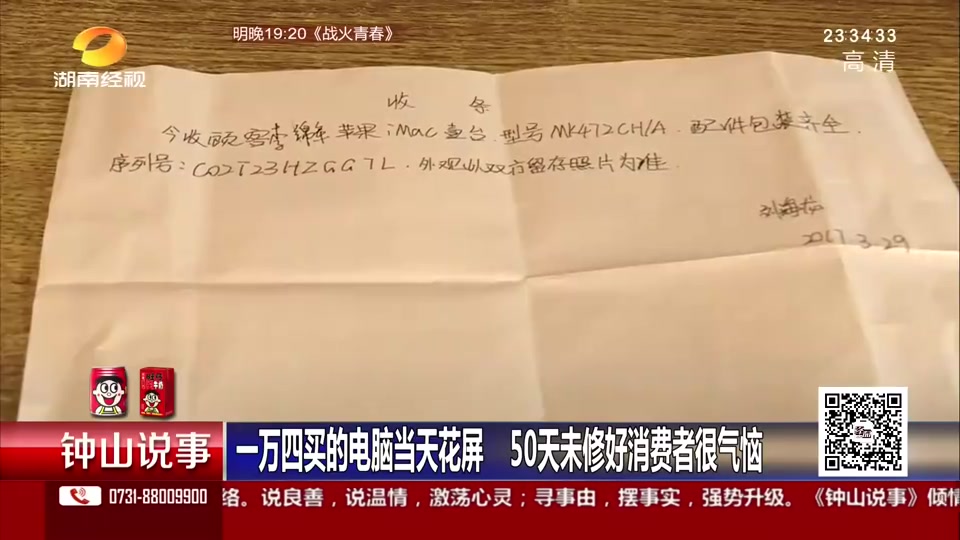 明晚19:20《战火青春》
23:34:33
高清
湖南经视
收 条
今收顾客李锦年苹果iMac壹台.型号MK472CH/A.配件包装齐全.
序列号:C02T23HZGG7L.外观以双方留存照片为准.
2017.3.29
钟山说事
一万四买的电脑当天花屏 50天未修好消费者很气恼
0731-88009900
络。说良善，说温情，激荡心灵；寻事由，摆事实，强势升级。《钟山说事》倾情